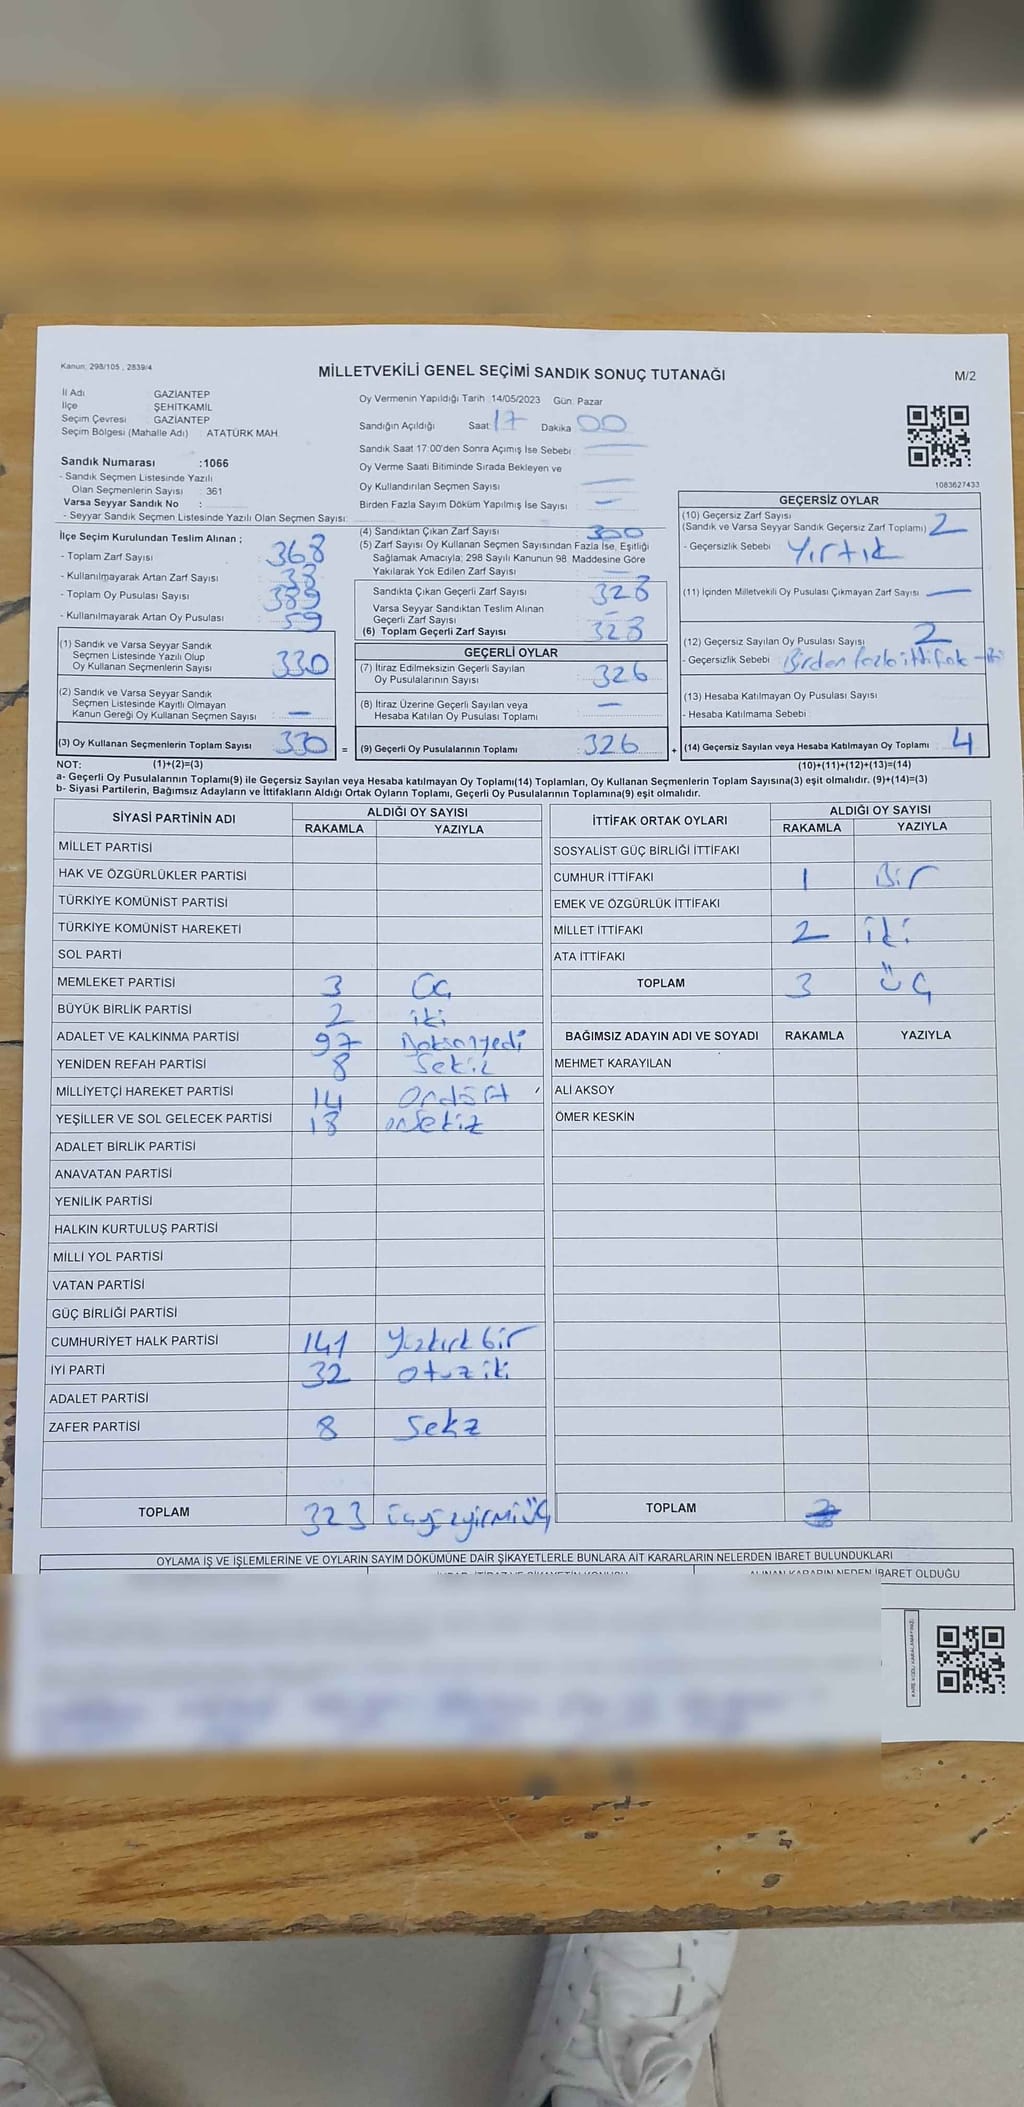 Kanun: 298/105 , 2839/4
MİLLETVEKİLİ GENEL SEÇİMİ SANDIK SONUÇ TUTANAĞI
M/2
İl Adı GAZİANTEP
İlçe ŞEHİTKAMİL
Seçim Çevresi GAZİANTEP
Seçim Bölgesi (Mahalle Adı) ATATÜRK MAH
Sandık Numarası :1066
- Sandık Seçmen Listesinde Yazılı
Olan Seçmenlerin Sayısı : 361
Varsa Seyyar Sandık No :
- Seyyar Sandık Seçmen Listesinde Yazılı Olan Seçmen Sayısı:
Oy Vermenin Yapıldığı Tarih 14/05/2023 Gün: Pazar
Sandığın Açıldığı Saat 17 Dakika 00
Sandık Saat 17:00'den Sonra Açımış İse Sebebi
Oy Verme Saati Bitiminde Sırada Bekleyen ve
Oy Kullandırılan Seçmen Sayısı —
Birden Fazla Sayım Döküm Yapılmış İse Sayısı : —
1083627433
İlçe Seçim Kurulundan Teslim Alınan ;
- Toplam Zarf Sayısı 368
- Kullanılmayarak Artan Zarf Sayısı 38
- Toplam Oy Pusulası Sayısı 389
- Kullanılmayarak Artan Oy Pusulası 59
(1) Sandık ve Varsa Seyyar Sandık
Seçmen Listesinde Yazılı Olup
Oy Kullanan Seçmenlerin Sayısı 330
(2) Sandık ve Varsa Seyyar Sandık
Seçmen Listesinde Kayıtlı Olmayan
Kanun Gereği Oy Kullanan Seçmen Sayısı —
(3) Oy Kullanan Seçmenlerin Toplam Sayısı 330 =
(4) Sandıktan Çıkan Zarf Sayısı
(5) Zarf Sayısı Oy Kullanan Seçmen Sayısından Fazla İse, Eşitliği
Sağlamak Amacıyla; 298 Sayılı Kanunun 98. Maddesine Göre
Yakılarak Yok Edilen Zarf Sayısı —
Sandıkta Çıkan Geçerli Zarf Sayısı 328
Varsa Seyyar Sandıktan Teslim Alınan
Geçerli Zarf Sayısı —
(6) Toplam Geçerli Zarf Sayısı 328
GEÇERLİ OYLAR
(7) İtiraz Edilmeksizin Geçerli Sayılan
Oy Pusulalarının Sayısı 326
(8) İtiraz Üzerine Geçerli Sayılan veya
Hesaba Katılan Oy Pusulası Toplamı —
(9) Geçerli Oy Pusulalarının Toplamı 326 +
GEÇERSİZ OYLAR
(10) Geçersiz Zarf Sayısı
(Sandık ve Varsa Seyyar Sandık Geçersiz Zarf Toplamı) 2
- Geçersizlik Sebebi Yırtık
(11) İçinden Milletvekili Oy Pusulası Çıkmayan Zarf Sayısı —
(12) Geçersiz Sayılan Oy Pusulası Sayısı 2
- Geçersizlik Sebebi Birden fazla ittifak
(13) Hesaba Katılmayan Oy Pusulası Sayısı
- Hesaba Katılmama Sebebi
(14) Geçersiz Sayılan veya Hesaba Katılmayan Oy Toplamı 4
NOT: (1)+(2)=(3) (10)+(11)+(12)+(13)=(14)
a- Geçerli Oy Pusulalarının Toplamı(9) ile Geçersiz Sayılan veya Hesaba katılmayan Oy Toplamı(14) Toplamları, Oy Kullanan Seçmenlerin Toplam Sayısına(3) eşit olmalıdır. (9)+(14)=(3)
b- Siyasi Partilerin, Bağımsız Adayların ve İttifakların Aldığı Ortak Oyların Toplamı, Geçerli Oy Pusulalarının Toplamına(9) eşit olmalıdır.
SİYASİ PARTİNİN ADI ALDIĞI OY SAYISI
RAKAMLA YAZIYLA
MİLLET PARTİSİ
HAK VE ÖZGÜRLÜKLER PARTİSİ
TÜRKİYE KOMÜNİST PARTİSİ
TÜRKİYE KOMÜNİST HAREKETİ
SOL PARTİ
MEMLEKET PARTİSİ 3 Üç
BÜYÜK BİRLİK PARTİSİ 2 iki
ADALET VE KALKINMA PARTİSİ 97 Doksanyedi
YENİDEN REFAH PARTİSİ 8 Sekiz
MİLLİYETÇİ HAREKET PARTİSİ 14 Ondört
YEŞİLLER VE SOL GELECEK PARTİSİ 18 onSekiz
ADALET BİRLİK PARTİSİ
ANAVATAN PARTİSİ
YENİLİK PARTİSİ
HALKIN KURTULUŞ PARTİSİ
MİLLİ YOL PARTİSİ
VATAN PARTİSİ
GÜÇ BİRLİĞİ PARTİSİ
CUMHURİYET HALK PARTİSİ 141 Yüzkırk bir
İYİ PARTİ 32 otuz iki
ADALET PARTİSİ
ZAFER PARTİSİ 8 Sekz
TOPLAM 323 üçyüzyirmiüç
İTTİFAK ORTAK OYLARI ALDIĞI OY SAYISI
RAKAMLA YAZIYLA
SOSYALİST GÜÇ BİRLİĞİ İTTİFAKI
CUMHUR İTTİFAKI 1 Bir
EMEK VE ÖZGÜRLÜK İTTİFAKI
MİLLET İTTİFAKI 2 iki
ATA İTTİFAKI
TOPLAM 3 üÇ
BAĞIMSIZ ADAYIN ADI VE SOYADI RAKAMLA YAZIYLA
MEHMET KARAYILAN
ALİ AKSOY
ÖMER KESKİN
TOPLAM
OYLAMA İŞ VE İŞLEMLERİNE VE OYLARIN SAYIM DÖKÜMÜNE DAİR ŞİKAYETLERLE BUNLARA AİT KARARLARIN NELERDEN İBARET BULUNDUKLARI
ALINAN KARARIN NEDEN İBARET OLDUĞU